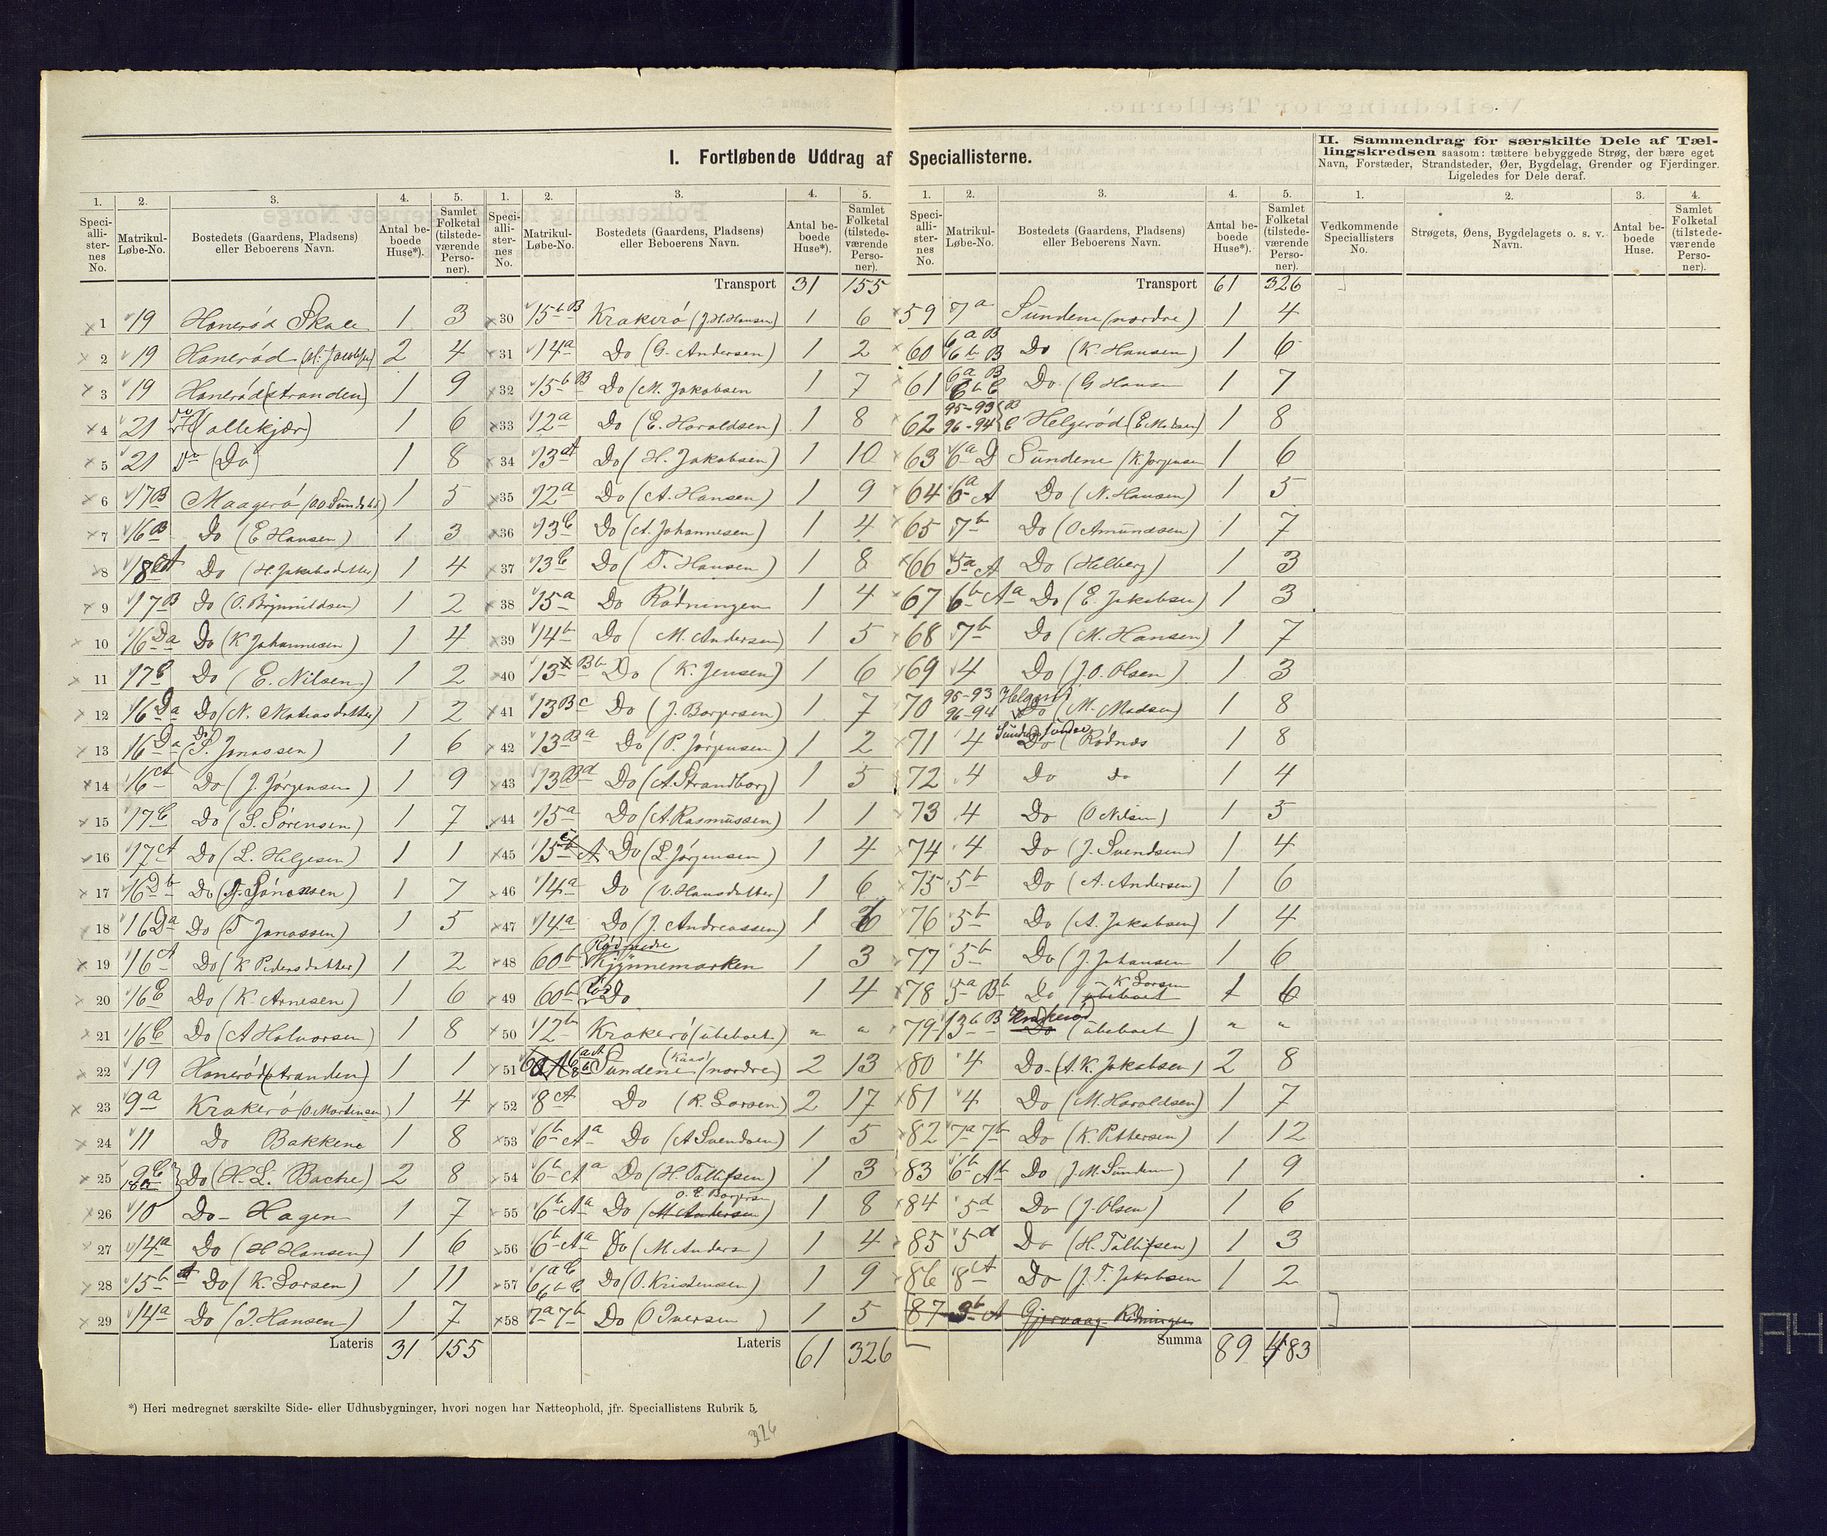 I. Fortløbende Uddrag af Speciallisterne.
II. Sammendrag for særskilte Dele af Tæl-
lingskredsen saasom: tættere bebyggede Strøg, der bære eget
Navn, Forstæder, Strandsteder, Øer, Bygdelag, Grender og Fjerdinger.
Ligeledes for Dele deraf.
1. 2. 3. 4. 5. 1. 2. 3. 4. 5. 1. 2. 3. 4. 5. 1. 2. 3. 4.
Speciallisternes No. Matrikul-Løbe-No. Bostedets (Gaardens, Pladsens) eller Beboerens Navn. Antal beboede Huse*). Samlet Folketal (tilstedeværende Personer).
Speciallisternes No. Matrikul-Løbe-No. Bostedets (Gaardens, Pladsens) eller Beboerens Navn. Antal beboede Huse*). Samlet Folketal (tilstedeværende Personer).
Speciallisternes No. Matrikul-Løbe-No. Bostedets (Gaardens, Pladsens) eller Beboerens Navn. Antal beboede Huse*). Samlet Folketal (tilstedeværende Personer).
Vedkommende Speciallisters No. Strøgets, Øens, Bygdelagets o. s. v. Navn. Antal beboede Huse. Samlet Folketal (tilstedeværende Personer).
1 19 Honerød Skole 1 3
2 19 Honerød 2 4
3 19 Honerød (Stranden) 1 9
4 21 (Hollekjær) 1 6
5 21 (Do) 1 8
6 17B Maagerø 1 5
7 16B Do (E Hansen) 1 3
8 18 Do (H. Jakobsdatter) 1 4
9 17B Do (O. Brynnildsen) 1 2
10 16Da Do (K Johannesen) 1 4
11 17C Do (E. Nilsen) 1 2
12 16Da Do (N. Matiasdatter) 1 2
13 16Da Do (P. Jonassen) 1 6
14 16A Do (J. Jørgensen) 1 9
15 17C Do (S. Sørensen) 1 7
16 17A Do (L. Helgesen) 1 1
17 16Db Do (J. Jonassen) 1 7
18 16Da Do (T Jonassen) 1 5
19 16A Do (K Pedersdatter) 1 2
20 16C Do (K. Arnesen) 1 6
21 16C Do (A Halvorsen) 1 8
22 19 Honerød (Stranden) 1 1
23 9a Krakerø (O. Mortensen) 1 4
24 11 Do Bakkene 1 8
25 9C Do (H. L. Bache) 2 8
26 10 Do- Hagen 1 7
27 14a Do (H Hansen) 1 6
28 15b A Do (K. Larsen) 1 11
29 14a Do (J. Hansen) 1 7
Lateris 31 155
Transport 31 155
30 15bB Krakerø (J. H. Hansen) 1 6
31 14a Do (G. Andersen) 1 2
32 15bB Do (M. Jakobsen 1 7
33 12a Do (E. Haraldsen) 1 8
34 13A Do (H. Jakobsen) 1 10
35 12a Do (A. Hansen) 1 9
36 13C Do (A. Johannesen) 1 4
37 13C Do (T. Hansen) 1 8
38 15a Do Rødningen 1 4
39 14b Do (M. Andersen) 1 5
40 13 Bb Do (K. Jensen) 1 6
41 13Bc Do (J. Borgersen) 1 7
42 13Ba Do (P. Jørgensen) 1 2
43 13Bd Do (A. Strandborg) 1 5
44 15a Do (A. Rasmussen) 1 1
45 15 A Do (L. Jørgensen) 1 4
46 14a Do (V. Hansdatter) 1 6
47 14a Do (J. Andreassen) 1 6
48 60b Rød nedre Kjønnemarken 1 3
49 60b Rød Do 1 4
50 12b Krakerø (ubeboet) " "
51 Sundene (nordre) 2 13
52 8A Do (R. Larsen) 2 17
53 6b Aa Do (A Svendsen) 1 5
54 6b Aa Do (H. Tallefsen) 1 3
55 6b Aa Do (M. Andersen) O. E. Borgersen 1 8
56 6b Aa Do (M. Anders) 1 4
57 6aC 6bC Do (O. Kristensen) 1 9
58 7a 7b Do (O Iversen) 1 5
Lateris 61 326
Transport 61 326
59 7a Sundene (nordre) 1 4
60 6aB 6bB Do (K. Hansen) 1 6
61 6aB 6bC Do (G Hansen 1 7
62 95-93 B 96-94 C Helgerød (E. Madsen) 1 8
63 6a D Sundene (K. Jørgensen 1 6
64 6a A Do (N. Hansen) 1 5
65 7b Do (O Amundsen) 1 7
66 5a A Do (Helberg) 1 3
67 6b Aa Do (E. Jakobsen) 1 3
68 7b Do (M. Hansen) 1 7
69 4 Do (J. O. Olsen) 1 3
70 95-93 96-94 Do (M. Madsen) 1 8
71 4 Do (Rødnæs 1 8
72 4 Do do 1 4
73 4 Do (O Nilsen) 1 5
74 4 Do (J. Svendsen) 1 4
75 5b Do (A. Andersen) 1 6
76 5b Do (A. Jakobsen) 1 4
77 5b Do (J. Johansen 1 6
78 5a Bb Do (ubeboet K. Larsen 1 6
79 13b B Krakerød Do (ubeboet) " "
80 4 Do- (A. K. Jakobsen) 2 8
81 4 Do (M. Haraldsen) 1 7
82 7a 7b Do (K. Pettersen) 1 12
83 6b Ab Do (J. M. Sunden) 1 9
84 5d Do (J. Olsen) 1 6
85 5d Do (H. Tallefsen) 1 3
86 8A Do (J. T. Jakobsen 1 2
87 3b A Gjervaag Rødningen
Summa 89 483
*) Heri medregnet særskilte Side- eller Udhusbygninger, hvori nogen har Natteophold, jfr. Speciallistens Rubrik 5.
326
A4